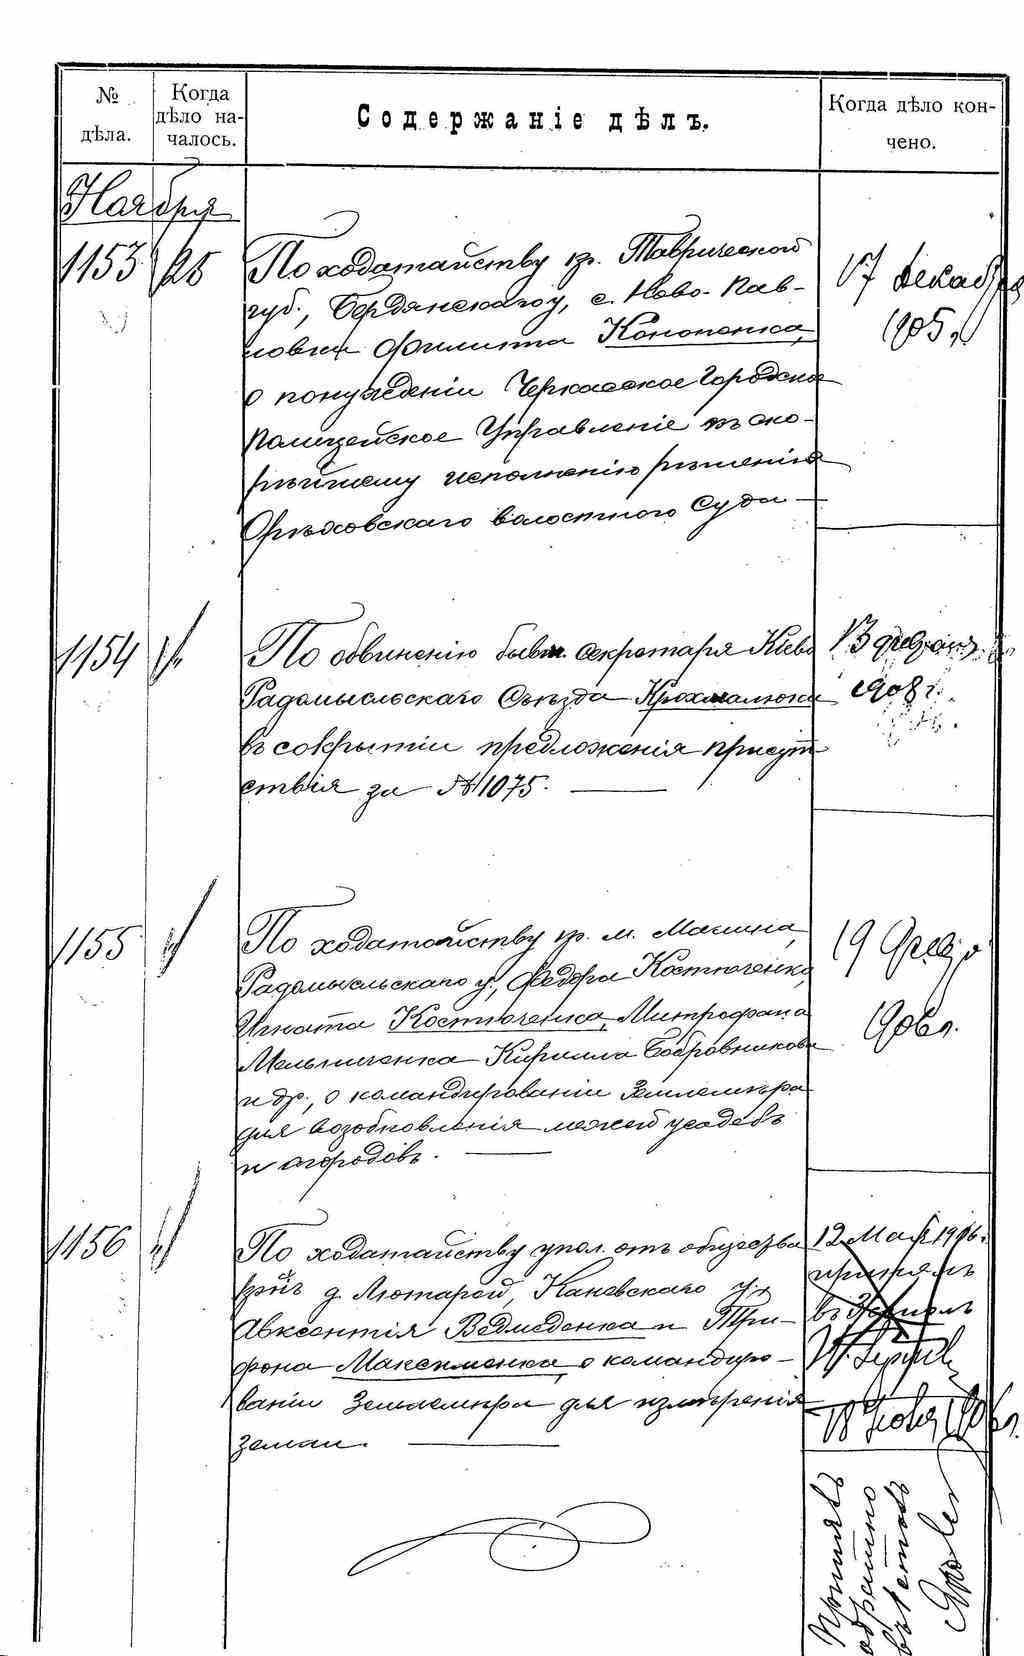 №
дѣла.
Когда
дѣло на-
чалось.
Содержаніе дѣлъ.
Когда дѣло кон-
чено.
Ноября
1153
25
По ходатайству кр. Таврической
губ., Бердянскаго у, с. Ново-Пав-
ловки Филиппа Кононенка,
о понужденіи Черкасское Городское
Полицейское Управленіе къ ско-
рѣйшему исполненію рѣшенія
Орѣховскаго волостного Суда —
17 Декабря
1905 г.
1154
"
По обвиненію бывш. секретаря Кіево
Радомысльскаго Съѣзда Крохмалюка
въ сокрытіи предложенія присут-
ствія за №1075. —
13
1908 г.
1155
"
По ходатайству кр. м. Макина,
Радомысльскаго у, Федора Костюченко,
Игната Костюченка, Митрофана
Мельниченка Кирилла Бобровникова
и др., о командированіи Землемѣра
для возобновленія межей усадебъ
и огородовъ. —
19
1906 г.
1156
"
По ходатайству упол. отъ общества
кр. д. Лютарой, Каневскаго у,
Авксентія Ведмеденка и Три-
фона Максименка, о командиро-
ваніи Землемѣра для измѣренія
земли. —
12 Мая 1906 г.
принялъ
въ
18 1906 г.
Принялъ
обратно